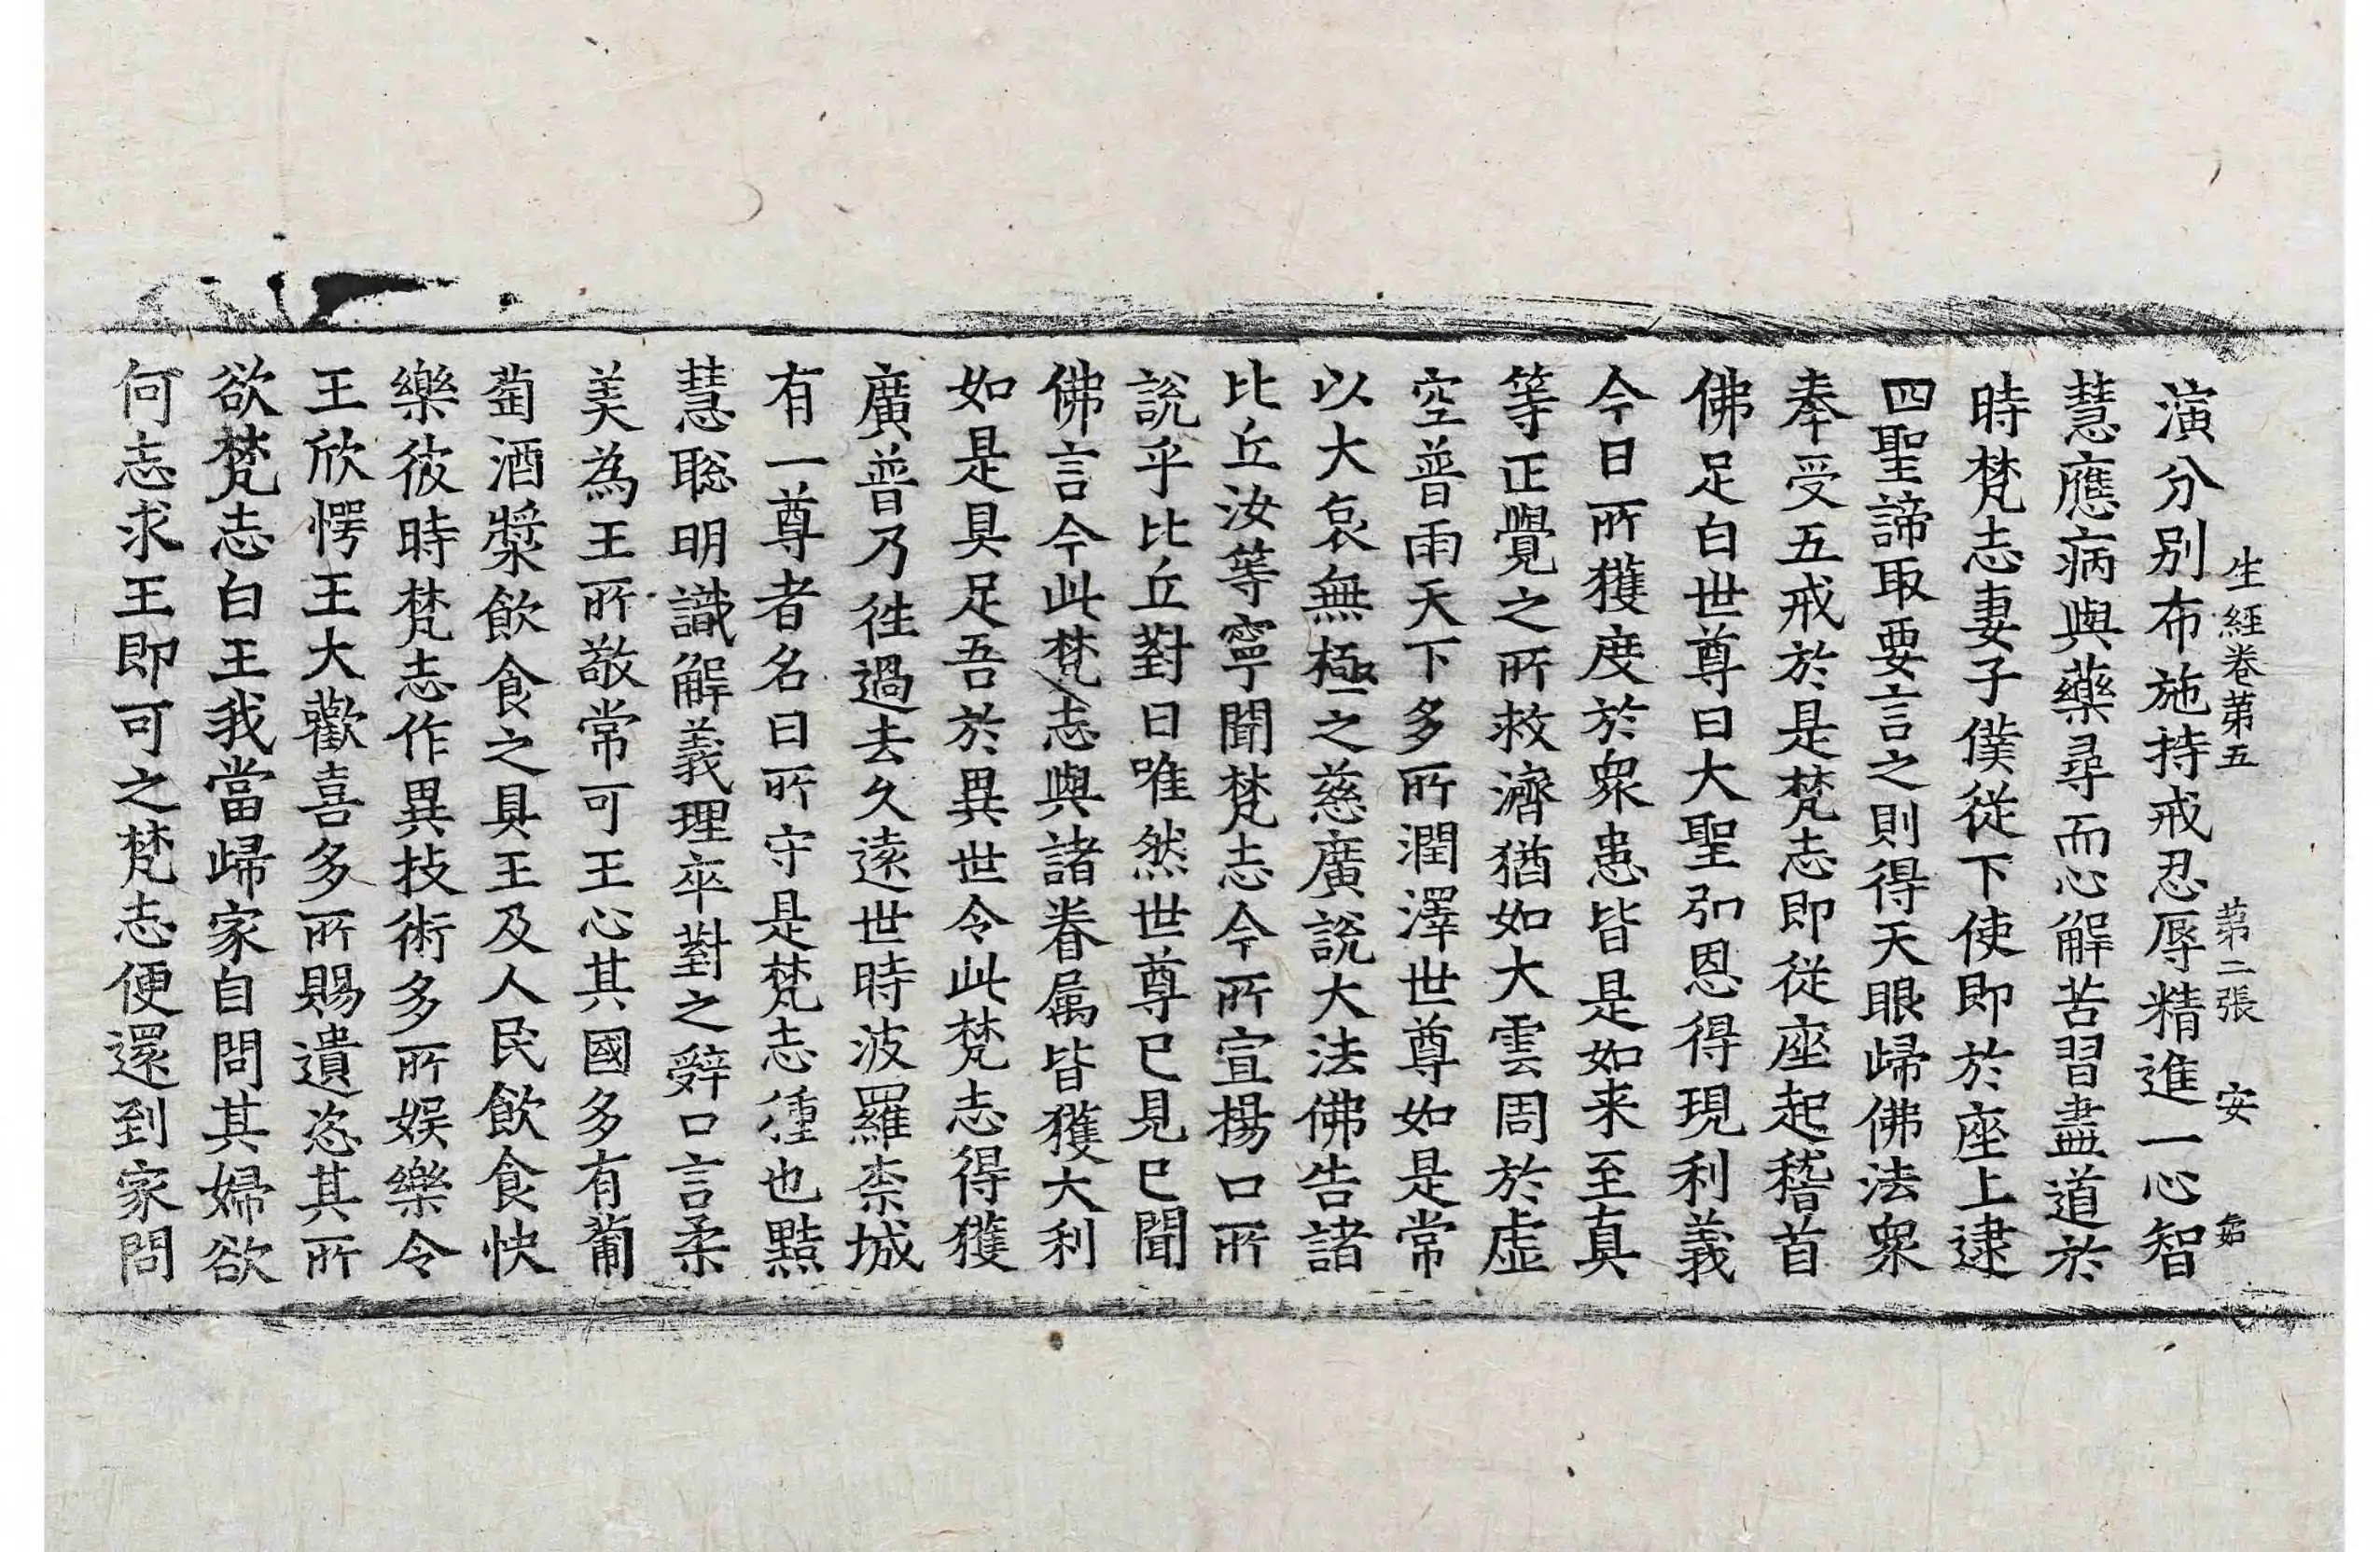 生經卷第五 第二張 安
演分別布施持戒忍辱精進一心智
慧應病與藥尋而心解苦習盡道於
時梵志妻子僕從下使即於座上逮
四聖諦取要言之則得天眼歸佛法衆
奉受五戒於是梵志即從座起稽首
佛足白世尊曰大聖弘恩得現利義
今日所獲度於衆患皆是如来至真
等正覺之所救濟猶如大雲周於虛
空普雨天下多所潤澤世尊如是常
以大哀無極之慈廣說大法佛告諸
比丘汝等寧聞梵志今所宣揚口所
說乎比丘對曰唯然世尊已見已聞
佛言今此梵志與諸眷属皆獲大利
如是具足吾於異世令此梵志得獲
廣普乃往過去久遠世時波羅柰城
有一尊者名曰所守是梵志種也黠
慧聡明識解義理卒對之辭口言柔
美為王所敬常可王心其國多有葡
萄酒漿飲食之具王及人民飲食快
樂彼時梵志作異技術多所娱樂令
王欣愕王大歡喜多所賜遺恣其所
欲梵志白王我當歸家自問其婦欲
何志求王即可之梵志便還到家問